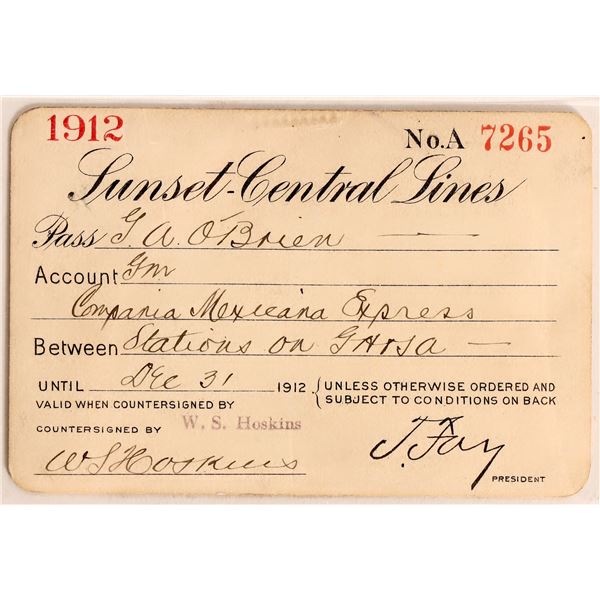 1912 No.A 7265
Sunset-Central Lines
Pass G. A. O'Brien
Account Gm
Compania Mexicana Express
Between Stations on GH&SA
UNTIL Dec 31 1912 { UNLESS OTHERWISE ORDERED AND
VALID WHEN COUNTERSIGNED BY SUBJECT TO CONDITIONS ON BACK
COUNTERSIGNED BY W. S. Hoskins
W S Hoskins J. Fay
PRESIDENT